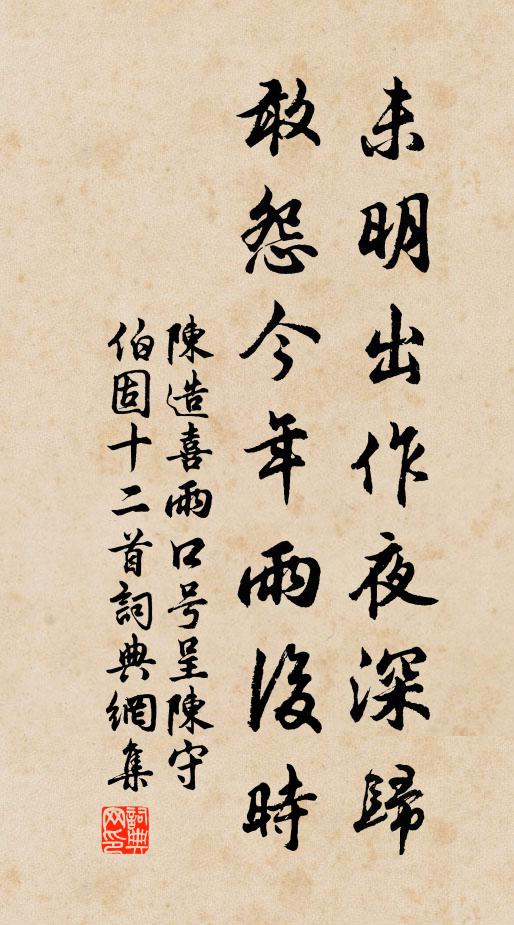 未明出作夜深歸
敢怨今年雨後時
陳造喜雨口号呈陳守
伯固十二首詞典網集
詞典网印